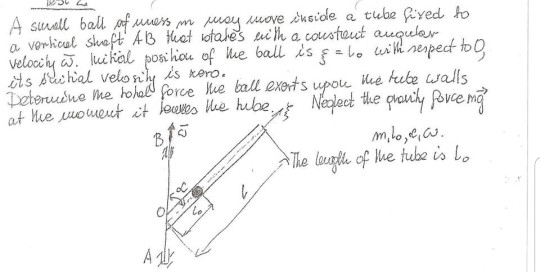 Test 2
A small ball of mass m may move inside a tube fixed to
a vertical shaft AB that rotates with a constant angular
velocity ω̅. Initial position of the ball is ξ = l₀ with respect to O,
its initial velosity is zero.
Determine the total force the ball exerts upon the tube walls
at the moment it leaves the tube. Neglect the gravity force mg⃗
ξ
B ω̅
m, l₀, α, ω.
The length of the tube is l₀
α
O
l₀
l
A